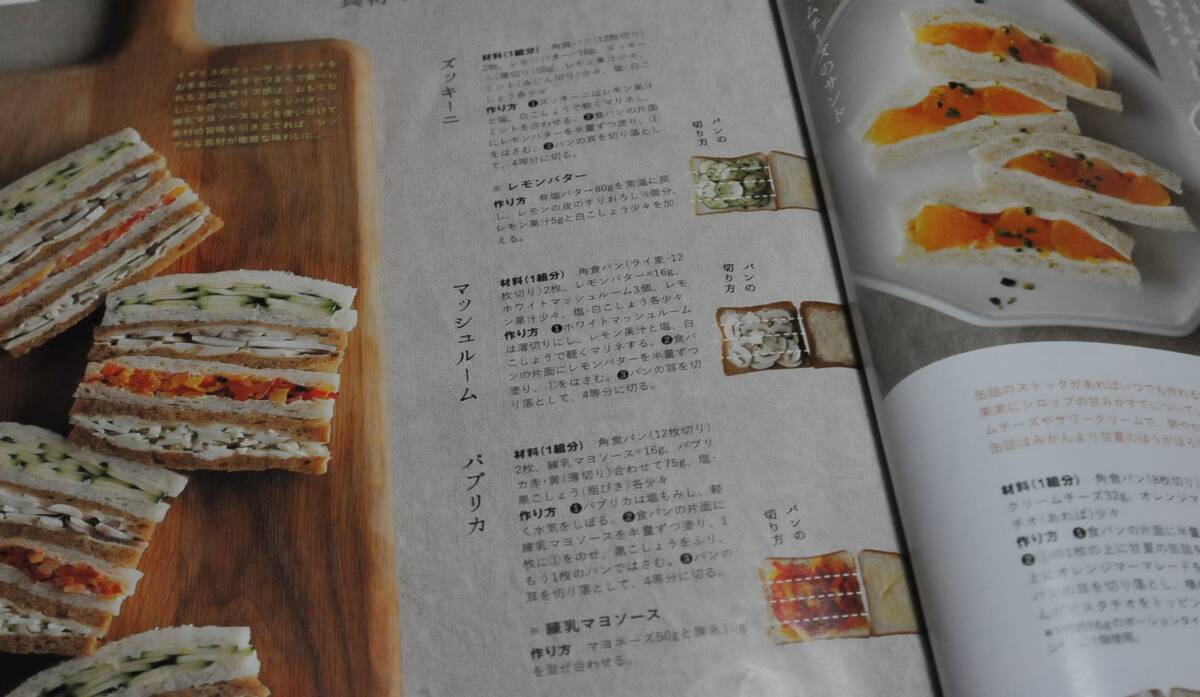 具材
イギリスのティーサンドイッチを
お手本に。片手でつまんで食べら
れる上品なサイズ感は、おもてな
しにもぴったり。レモンバター、
練乳マヨソースなどを使い分けて
素材の旨味を引き立てれば、シン
プルな具材が複雑な味わいに。
ズッキーニ
材料(1組分) 角食パン(12枚切り)
2枚、レモンバター※16g、ズッキー
ニ(薄切り)50g、レモン果汁少々、
ミント(みじん切り)少々、塩・白こ
しょう各少々
作り方 ❶ズッキーニはレモン果汁
と塩、白こしょうで軽くマリネし、
ミントを合わせる。❷食パンの片面
にレモンバターを半量ずつ塗り、①
をはさむ。❸パンの耳を切り落とし
て、4等分に切る。
※ レモンバター
作り方 有塩バター80gを常温に戻
し、レモンの皮のすりおろし½個分、
レモン果汁5gと白こしょう少々を加
える。
パンの
切り方
マッシュルーム
材料(1組分) 角食パン(ライ麦・12
枚切り)2枚、レモンバター※16g、
ホワイトマッシュルーム3個、レモ
ン果汁少々、塩・白こしょう各少々
作り方 ❶ホワイトマッシュルーム
は薄切りにし、レモン果汁と塩、白
こしょうで軽くマリネする。❷食パ
ンの片面にレモンバターを半量ずつ
塗り、①をはさむ。❸パンの耳を切
り落として、4等分に切る。
パンの
切り方
パプリカ
材料(1組分) 角食パン(12枚切り)
2枚、練乳マヨソース※16g、パプリ
カ赤・黄(薄切り)合わせて75g、塩・
黒こしょう(粗びき)各少々
作り方 ❶パプリカは塩もみし、軽
く水気をしぼる。❷食パンの片面に
練乳マヨソースを半量ずつ塗り、1
枚に①をのせ、黒こしょうをふり、
もう1枚のパンではさむ。❸パンの
耳を切り落として、4等分に切る。
※ 練乳マヨソース
作り方 マヨネーズ50gと練乳10g
を混ぜ合わせる。
パンの
切り方
ムチーズのサンド
缶詰のストックがあればいつでも作れる
果実にシロップの甘みがすでについて
ムチーズやサワークリームで、爽やか
缶詰はみかんより甘夏のほうがほろ
材料(1組分) 角食パン(8枚切り)
クリームチーズ32g、オレンジマ
チオ(あれば)少々
作り方 ❶食パンの片面に半量
❷①の1枚の上に甘夏の缶詰を
上にオレンジマーマレードを
パンの耳を切り落とし、横
んだピスタチオをトッピン
16gのポーションタイ
個使用。